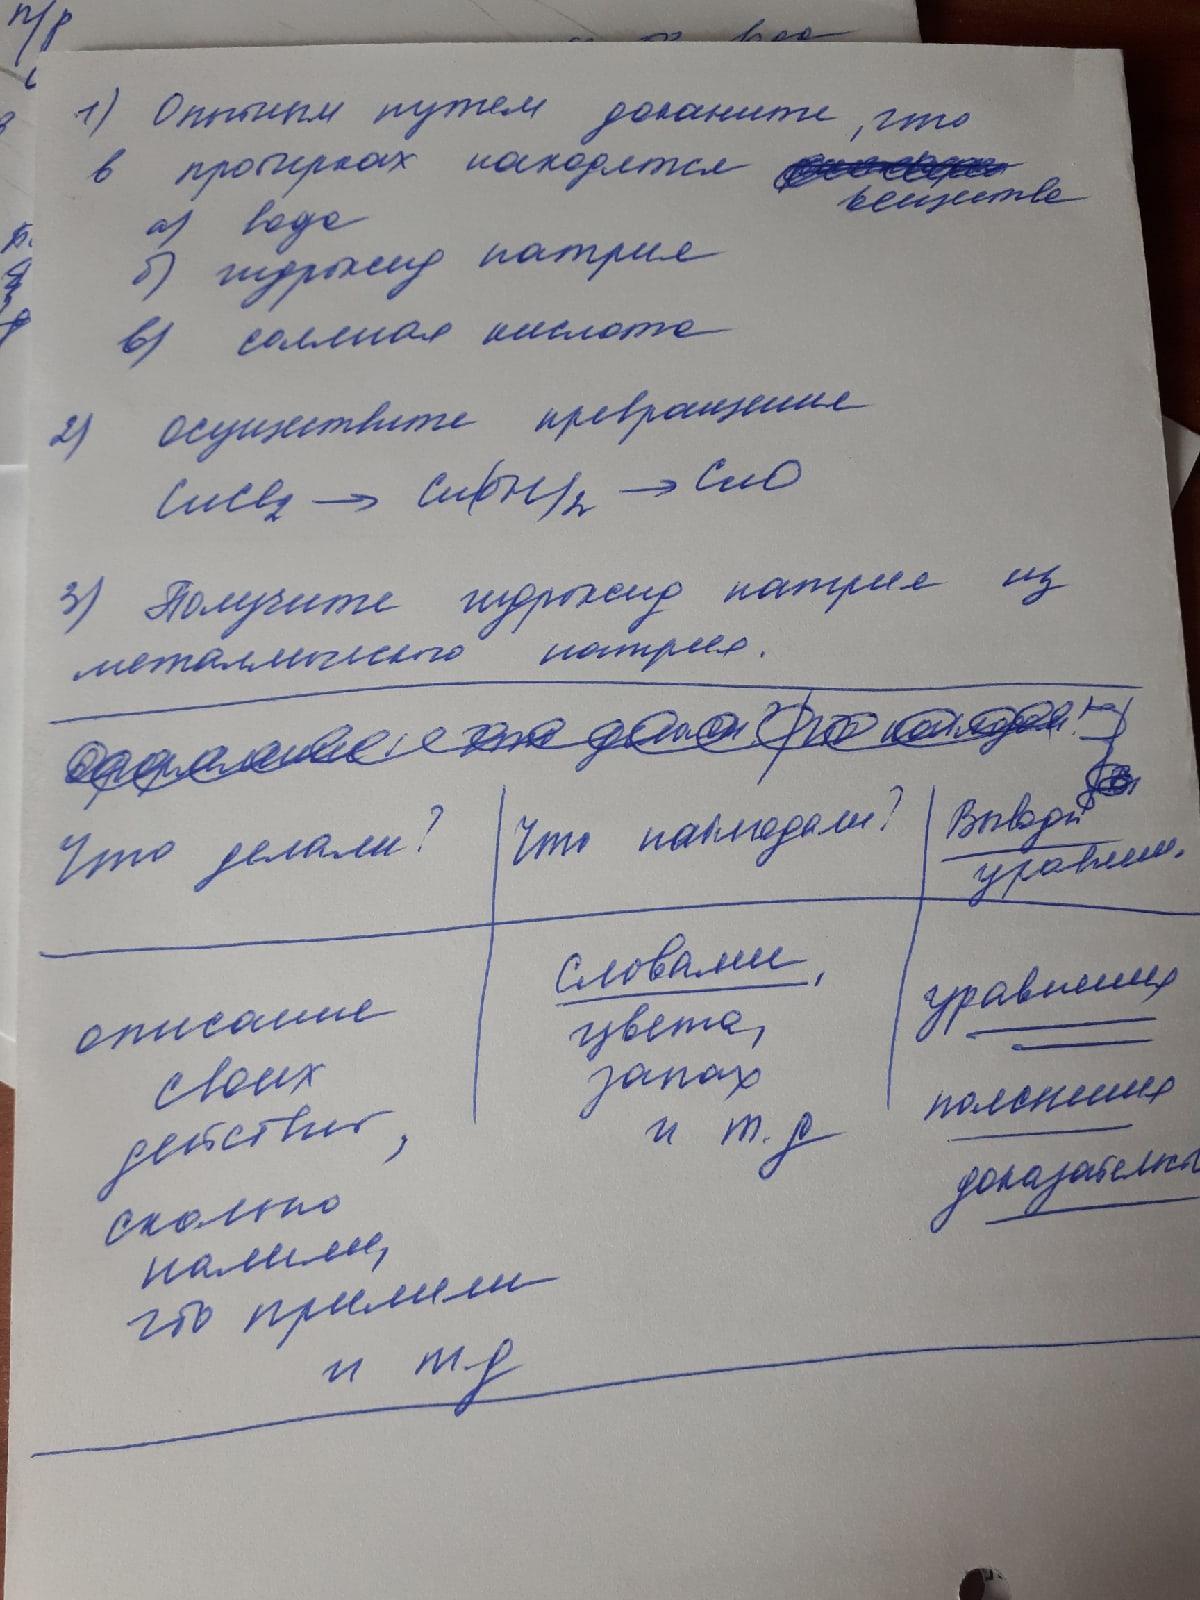 п/р
1) Опытным путем докажите, что
в пробирках находятся
вещества
а) вода
б) гидроксид натрия
в) соляная кислота
2) Осуществите превращение
CuCl₂ → Cu(OH)₂ → CuO
3) Получите гидроксид натрия из
металлического натрия.
Что делали? Что наблюдали? Выводы
уравнен.
описание
своих
действий,
сколько
налили,
что прилили
и т.д
Словами,
цвета,
запах
и т.д
уравнения
пояснения
доказательст